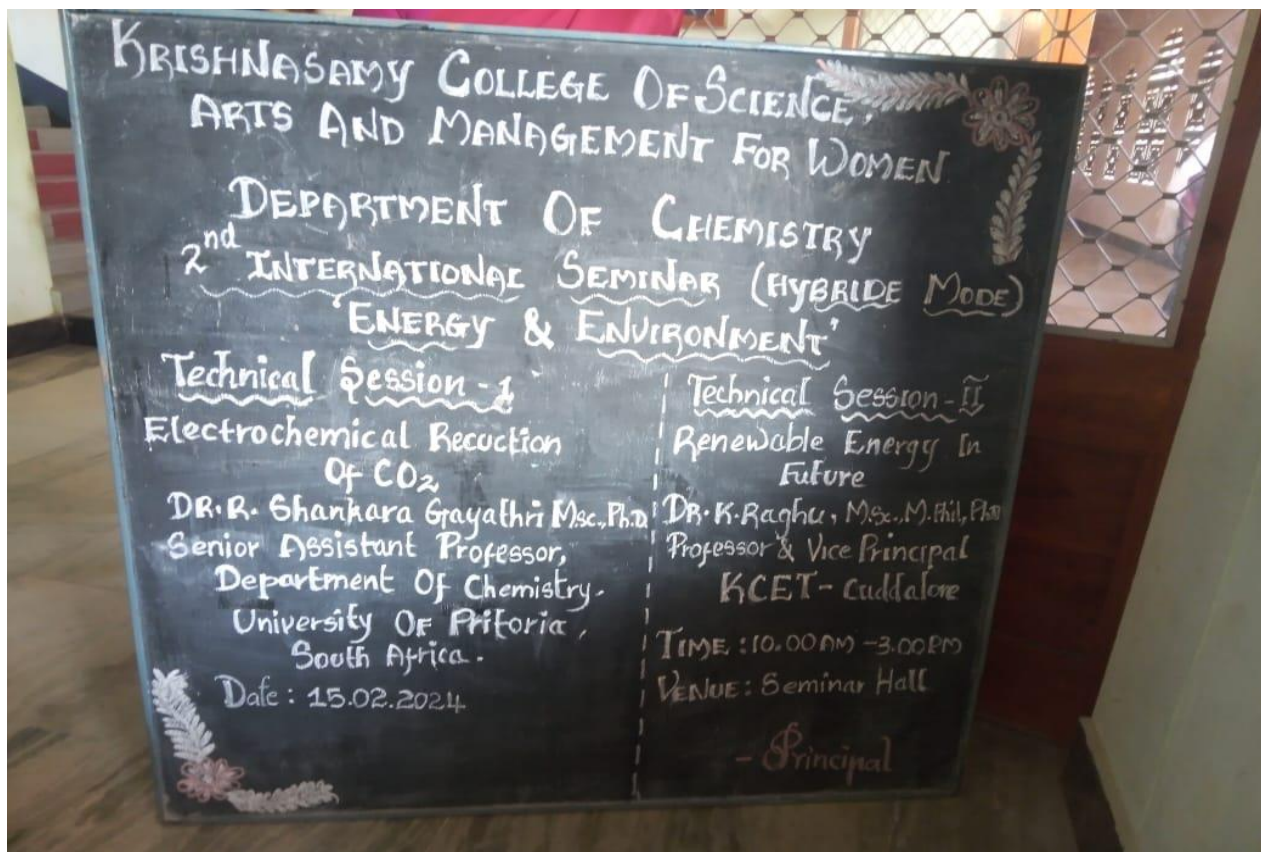 KRISHNASAMY COLLEGE OF SCIENCE,
ARTS AND MANAGEMENT FOR WOMEN
DEPARTMENT OF CHEMISTRY
2nd INTERNATIONAL SEMINAR (HYBRIDE MODE)
'ENERGY & ENVIRONMENT'
Technical Session - 1
Electrochemical Recuction
Of CO2
DR. R. Shankara Gayathri M.sc., Ph.D
Senior Assistant Professor,
Department Of Chemistry.
University Of Pritoria,
South Africa.
Date : 15.02.2024
Technical Session - II
Renewable Energy In
Future
DR. K. Raghu, M.Sc., M.Phil, Ph.D
Professor & Vice Principal
KCET - Cuddalore
TIME : 10.00 AM - 3.00 PM
VENUE : Seminar Hall
- Principal